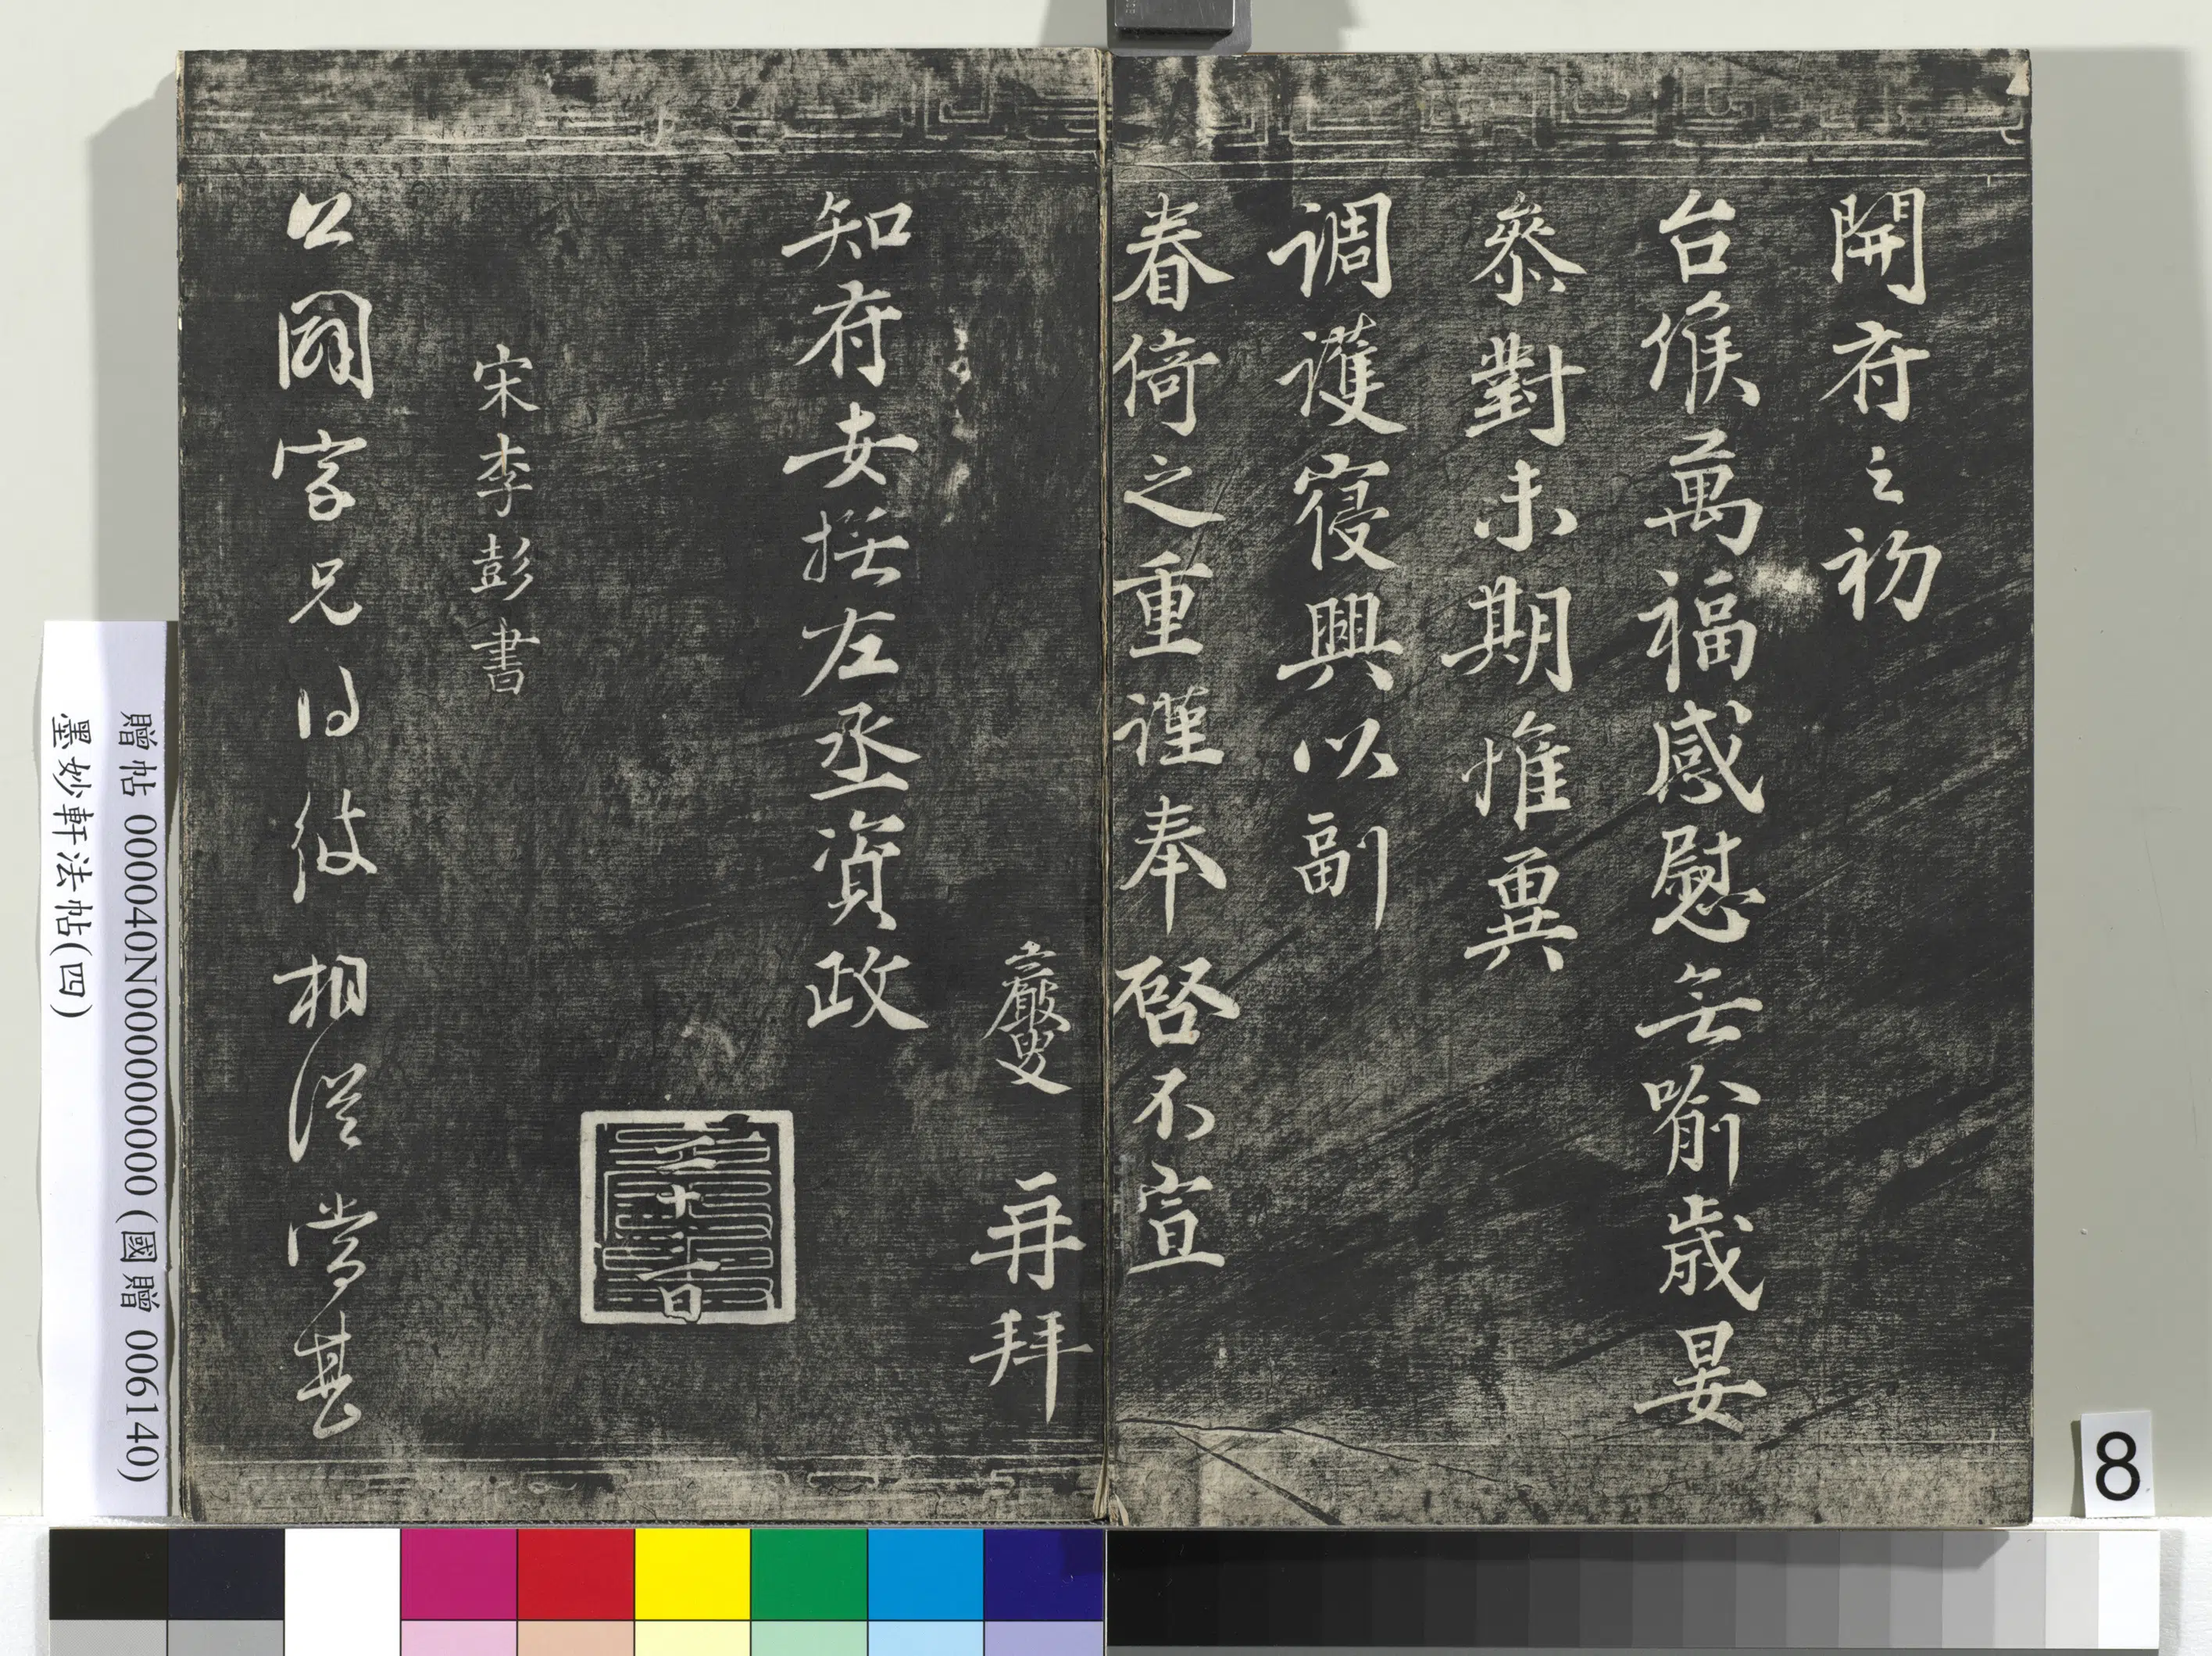 開府之初
台候萬福感慰無喻歲晏
參對未期惟冀
調護寢興以副
眷倚之重謹奉啓不宣
巖叟 再拜
知府安撫左丞資政
二十一日
宋李彭書
公國家兄
相從當甚
贈帖 000040N000000000 (國贈 006140)
墨妙軒法帖(四)
8